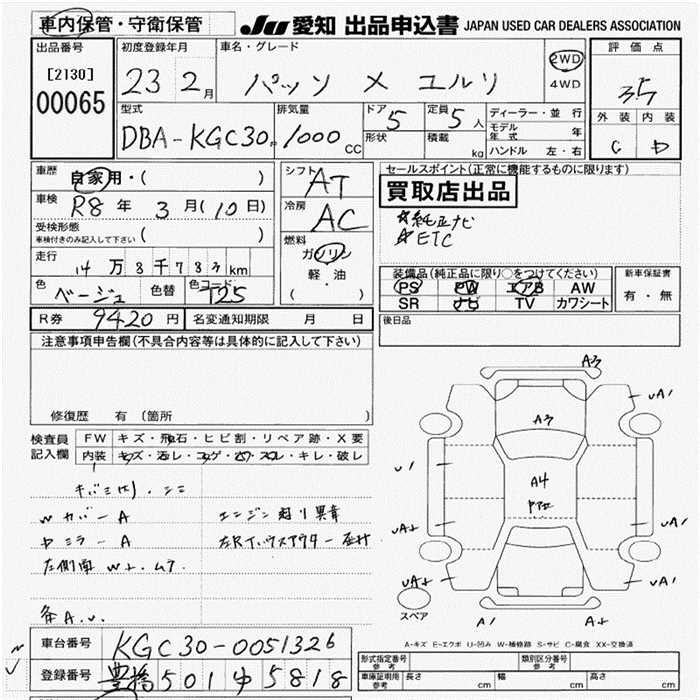 車内保管・守衛保管
JU 愛知 出品申込書 JAPAN USED CAR DEALERS ASSOCIATION
出品番号
[2130]
00065
初度登録年月
23 2月
車名・グレード
パッソ
2WD
4WD
評価点
3.5
外装 内装
C D
型式
DBA-KGC30
排気量
1000 CC
ドア 5
形状
定員 5人
積載 kg
ディーラー・並行
モデル年式 年
ハンドル 左・右
車歴 自家用・( )
車検 R8年 3月(10日)
受検形態
車検付きのみ記入して下さい ( )
走行 14万8千783km
色 ベージュ 色替 色コード T25
シフト AT
冷房 AC
燃料
ガソリン
軽・油
( )
セールスポイント(正常に機能するものに限ります)
買取店出品
☆純正ナビ
☆ETC
装備品(純正品に限り○をつけてください)
PS PW エアB AW
SR ナビ TV カワシート
新車保証書
有・無
R券 9420円 名変通知期限 月 日
後日品
注意事項申告欄(不具合内容等は具体的に記入して下さい)
修復歴 有 (箇所
検査員記入欄
FW キズ・飛石・ヒビ割・リペア跡・X要
内装 キズ・汚レ・コゲ・穴・スレ・キレ・破レ
Wカバー A
ドミラー A
エンジン廻り異音
左側面 W+.ムラ
A3
UA1
A3
U1
A4
UA+
UA1
UA+
UA1
スペア
A1
A+
A-キズ E-エクボ U-凹み W-補修跡 S-サビ C-腐食 XX-交換済
車台番号 KGC30-0051326
登録番号 豊橋 501 ゆ 5818
形式指定番号 参考
類別区分番号 参考
車庫証明用 参考 長さ cm 幅 cm 高さ cm